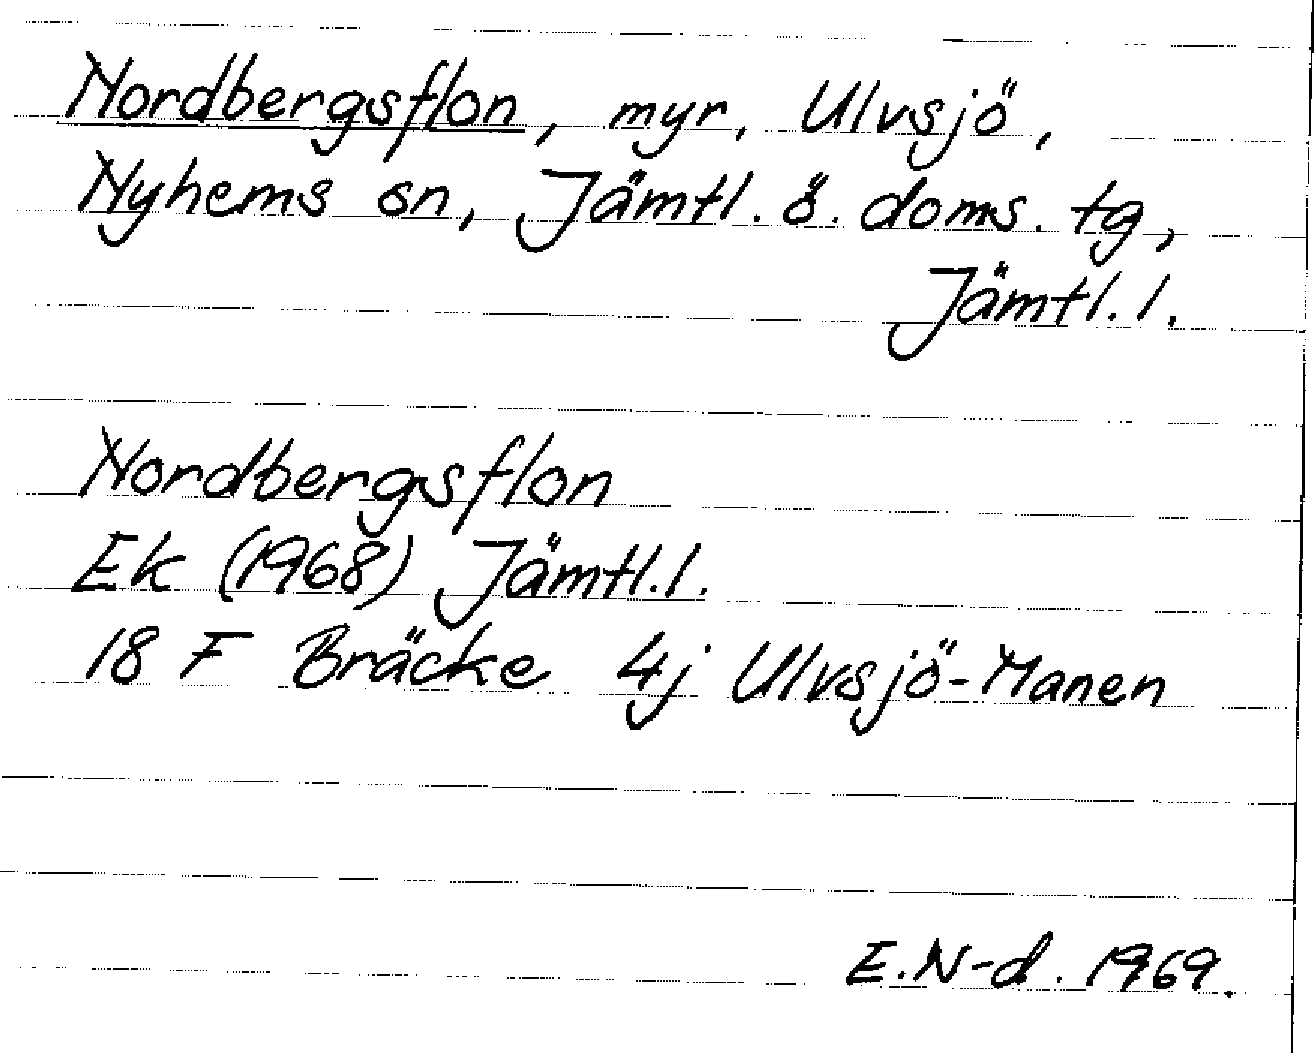 Nordbergsflon, myr, Ulvsjö,
Nyhems sn, Jämtl. ö. doms. tg,
Jämtl. l.
Nordbergsflon
Ek (1968) Jämtl. l.
18 F Bräcke 4j Ulvsjö-Manen
E.N-d. 1969.